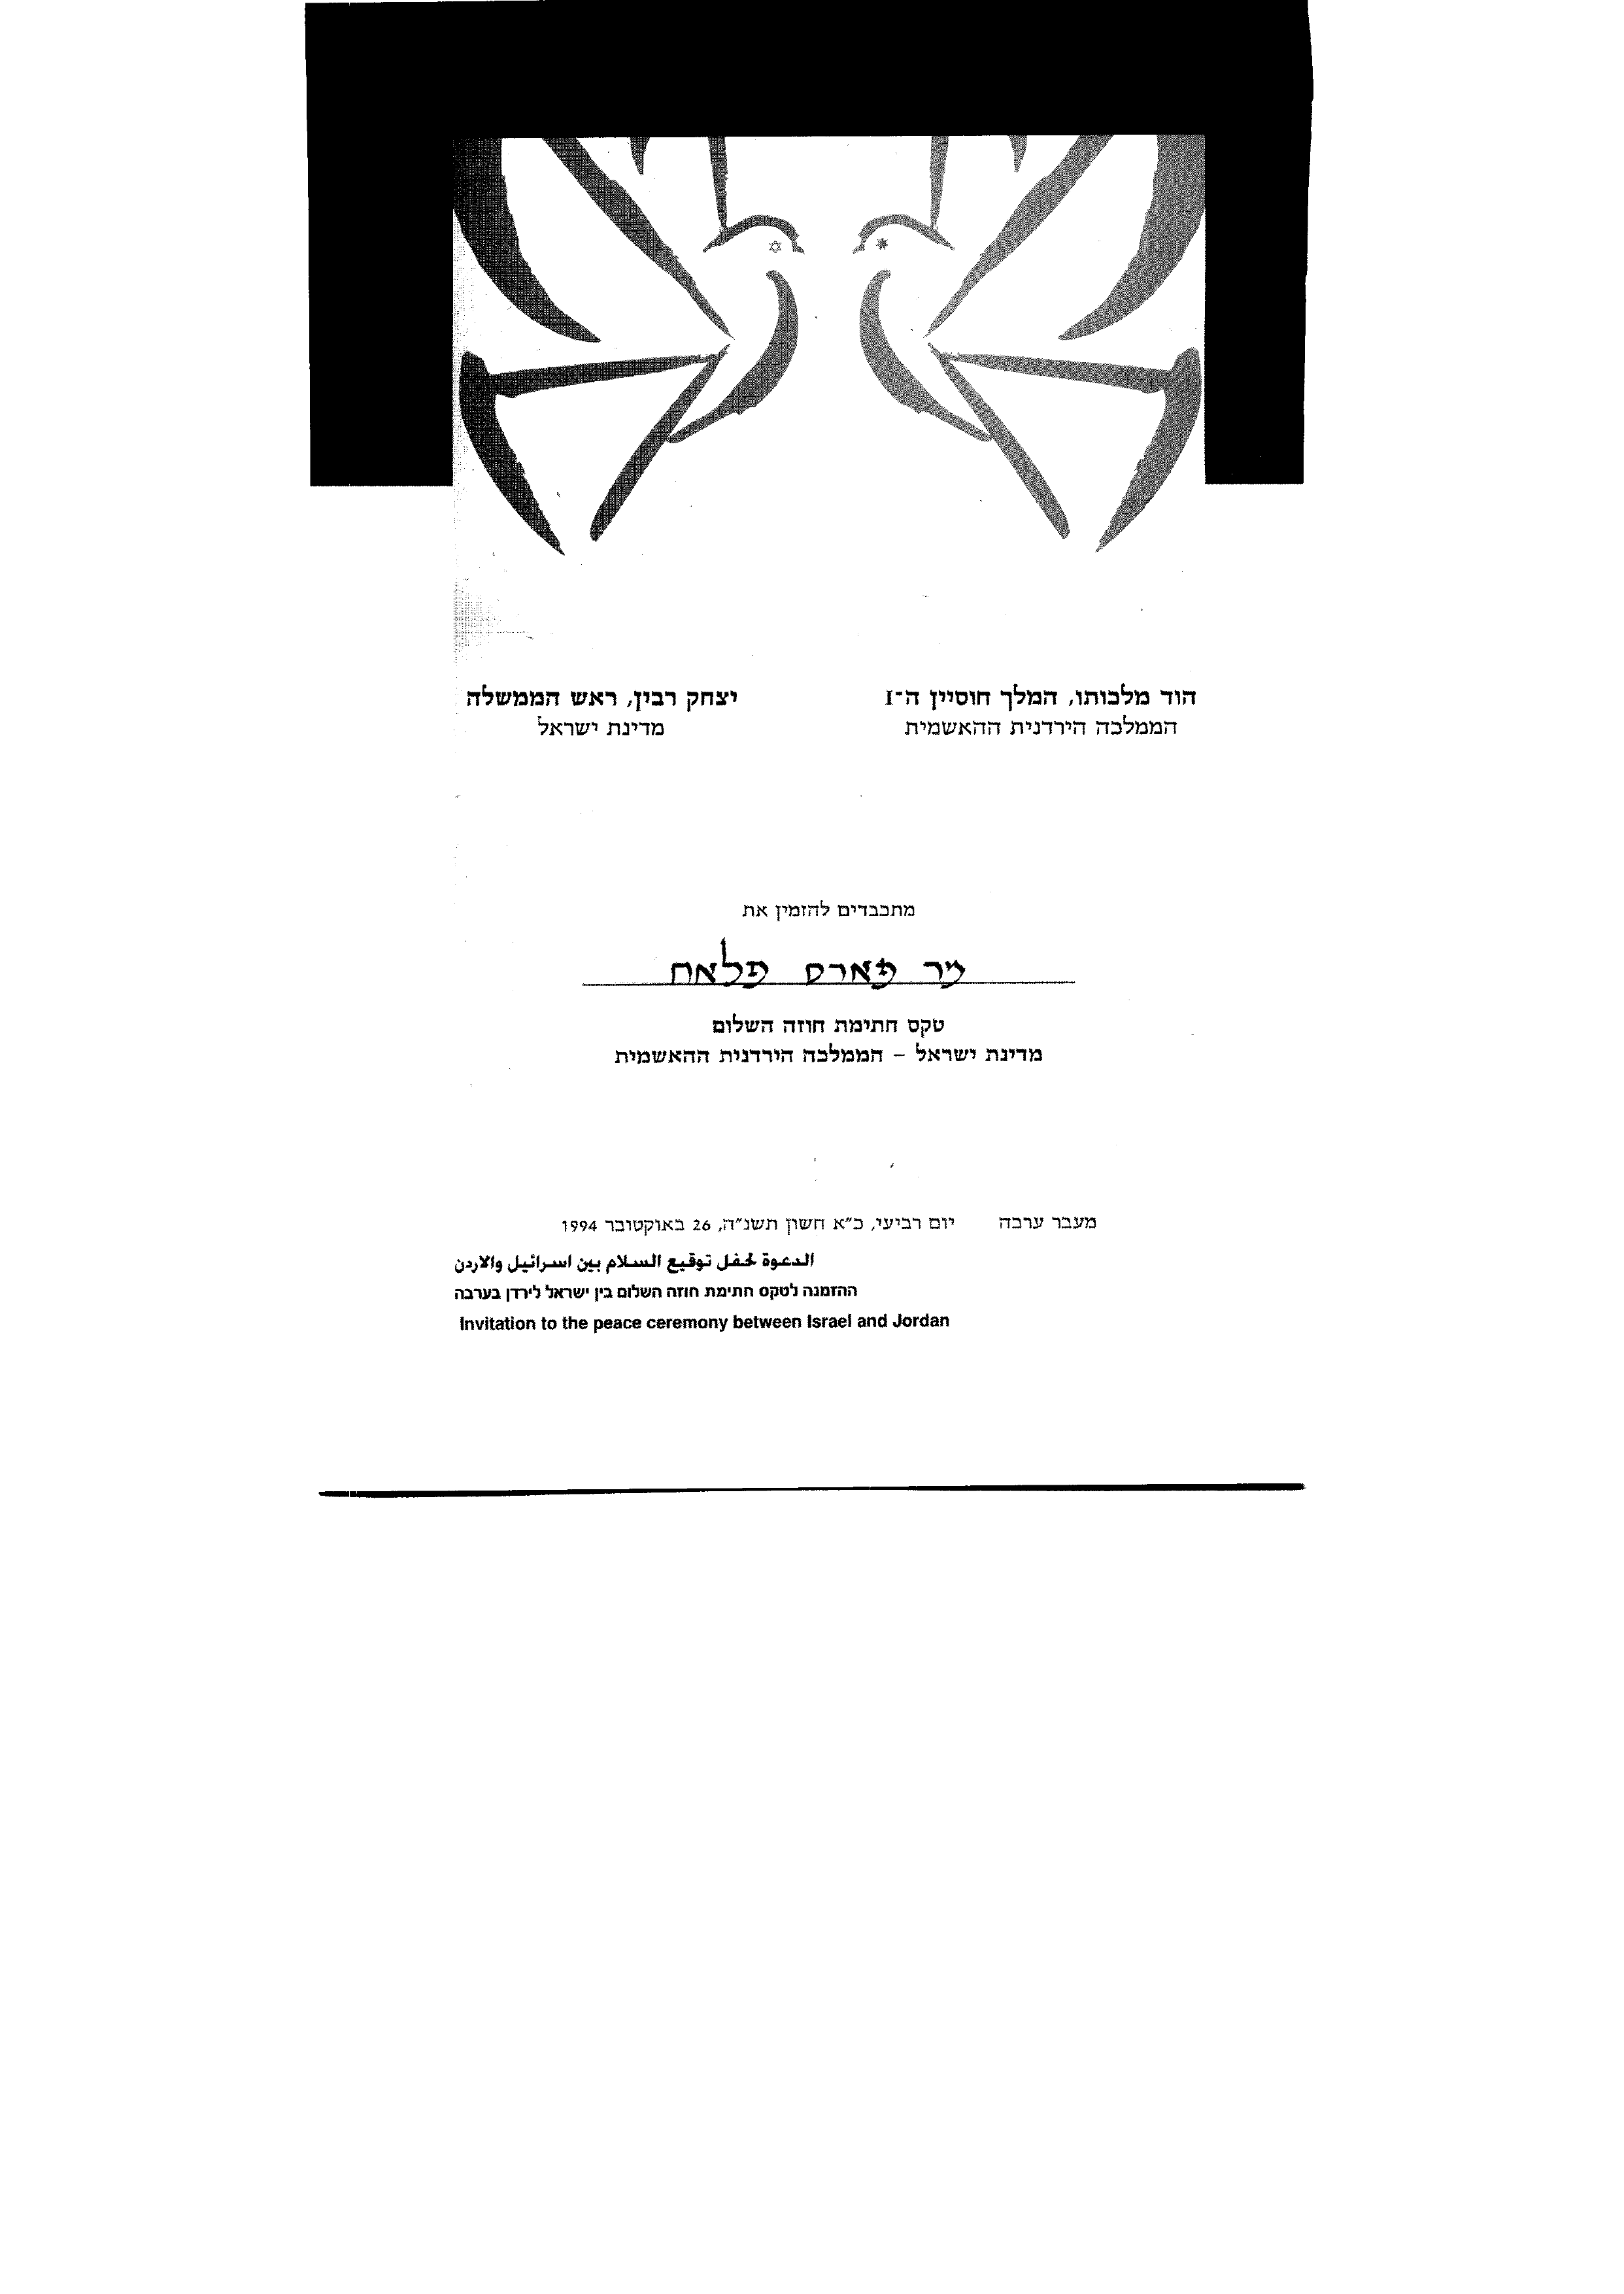 הוד מלכותו, המלך חוסיין ה־I
הממלכה הירדנית ההאשמית
יצחק רבין, ראש הממשלה
מדינת ישראל
מתכבדים להזמין את
מר פארס פלאח
טקס חתימת חוזה השלום
מדינת ישראל – הממלכה הירדנית ההאשמית
מעבר ערבה יום רביעי, כ״א חשון תשנ״ה, 26 באוקטובר 1994
الدعوة لحفل توقيع السلام بين اسرائيل والاردن
ההזמנה לטקס חתימת חוזה השלום בין ישראל לירדן בערבה
Invitation to the peace ceremony between Israel and Jordan